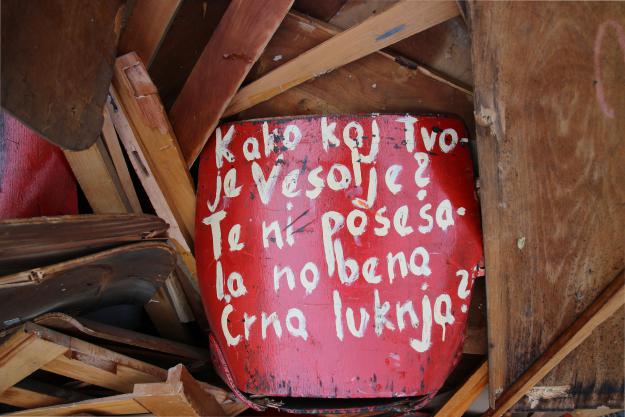 Kako kaj Tvo-
je Vesolje?
Te ni posesa-
la nobena
Črna luknja?